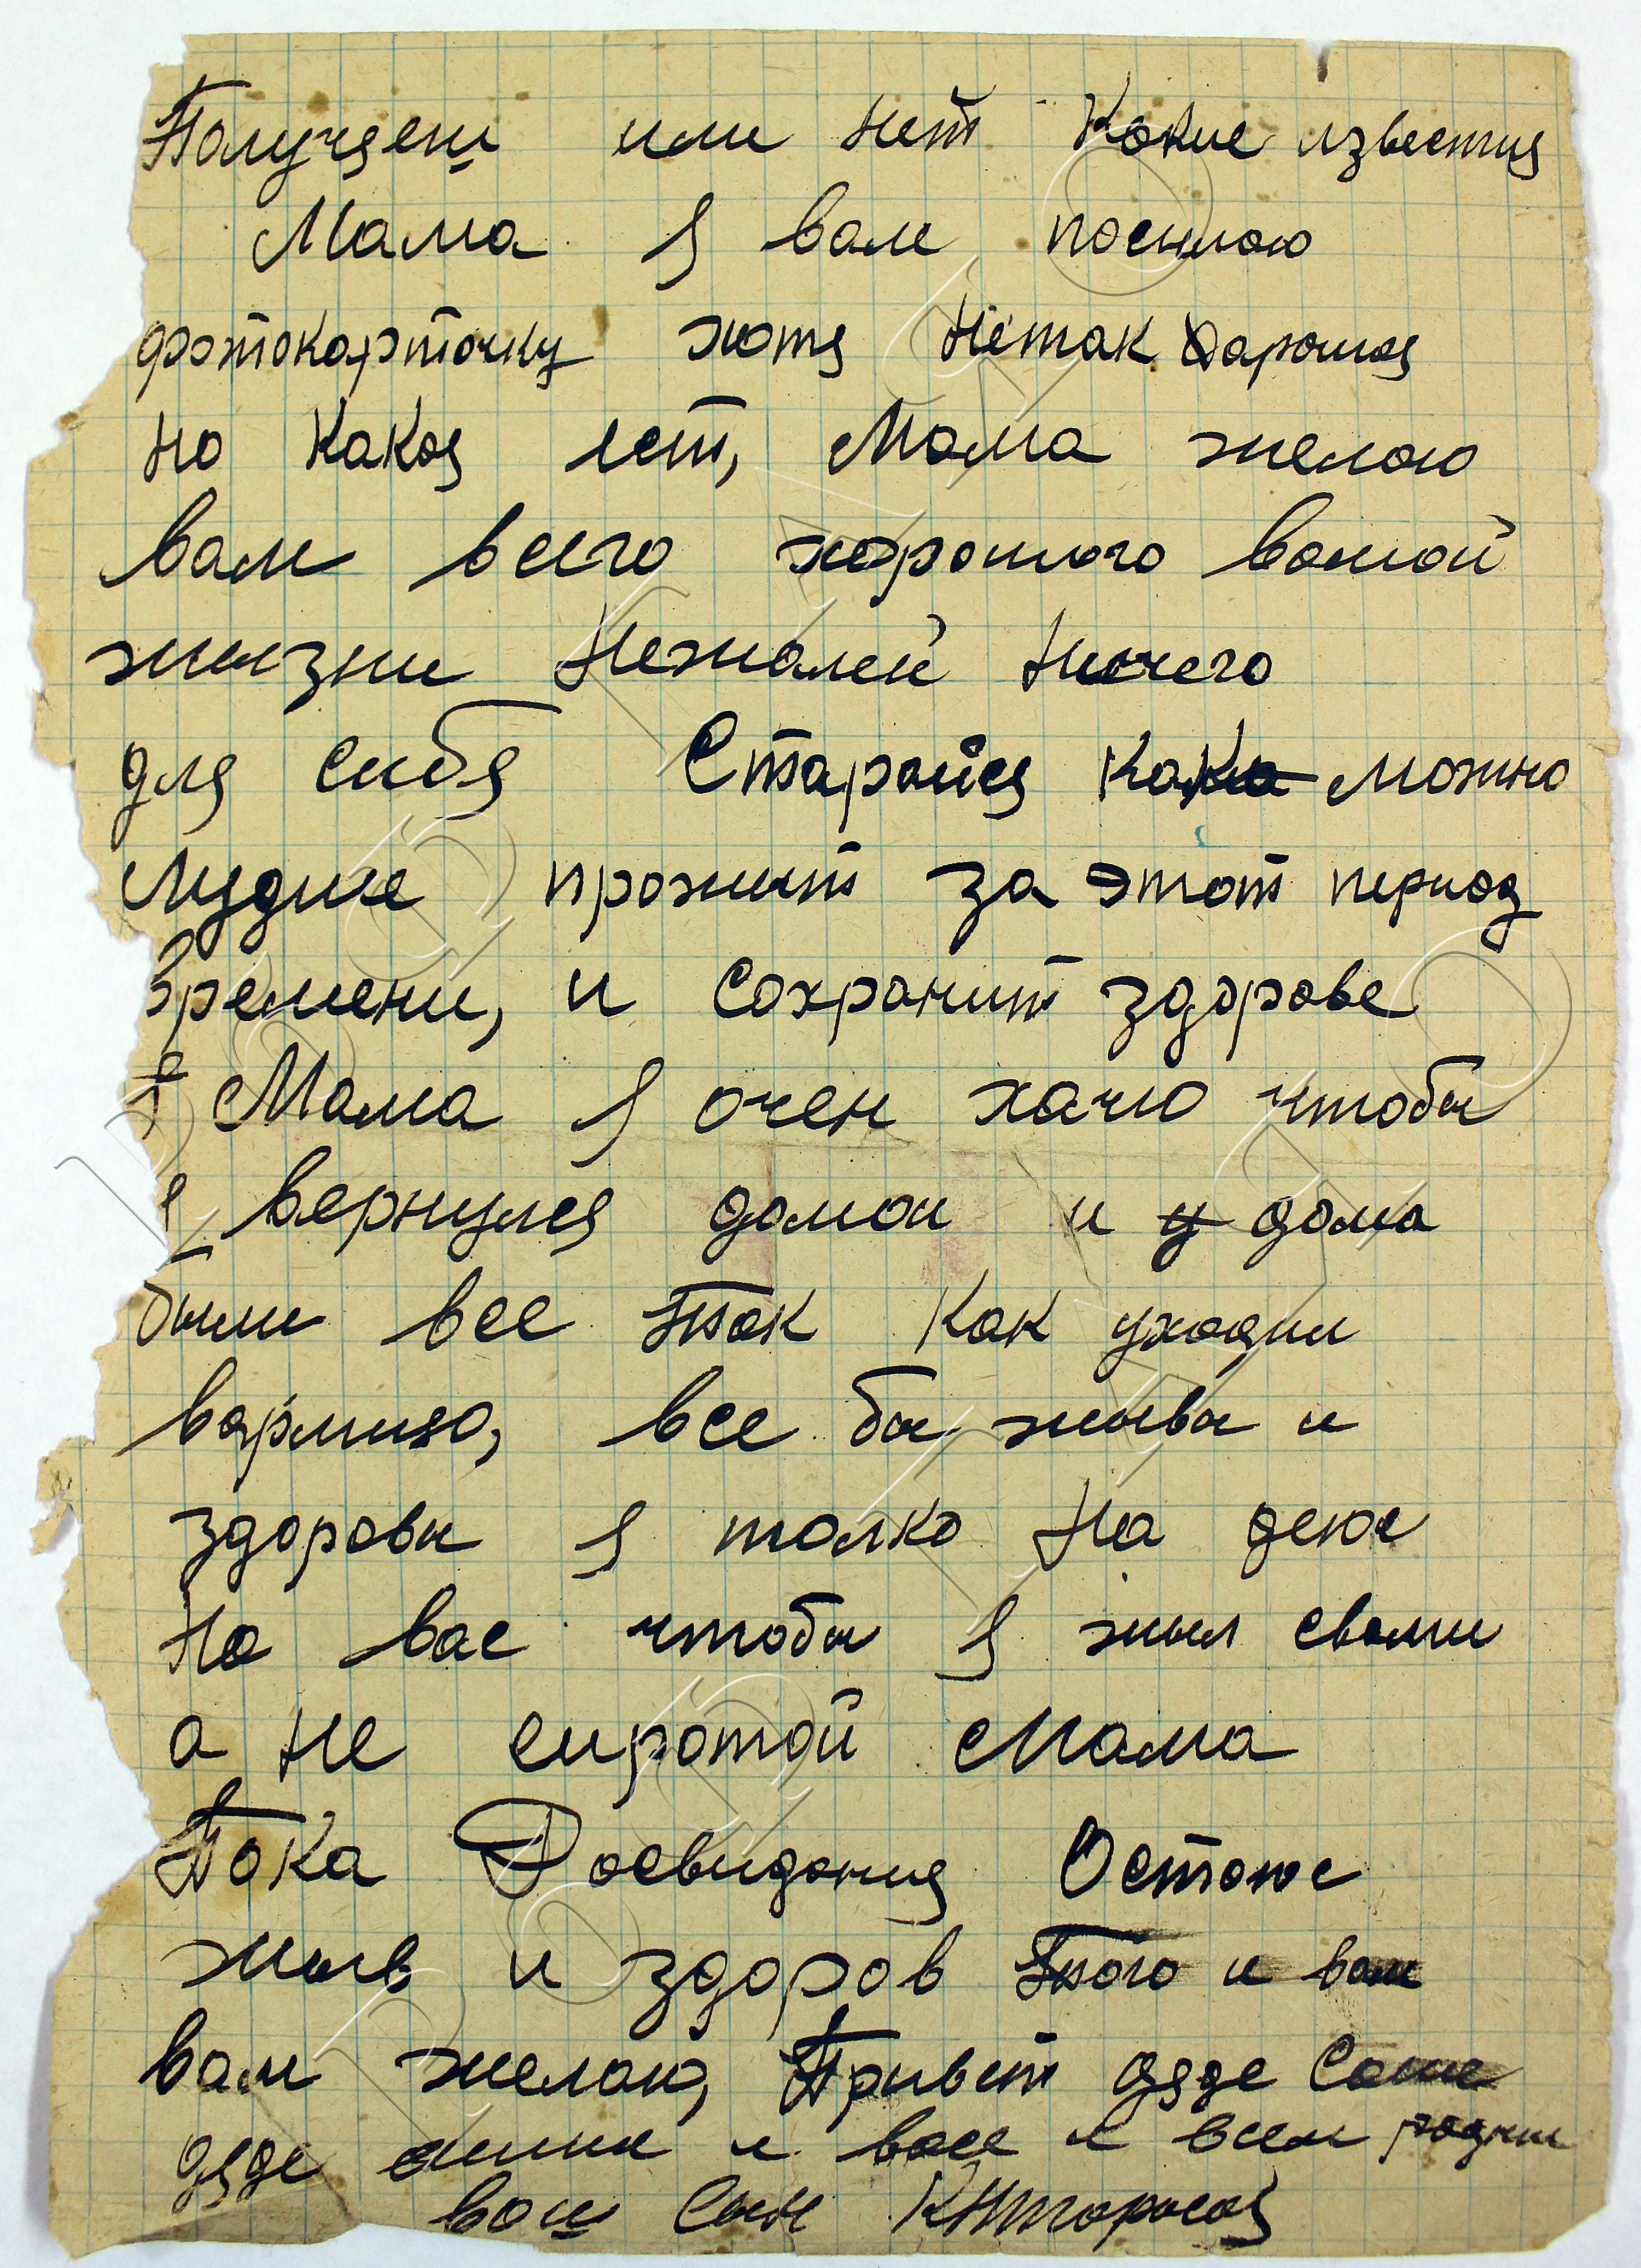 Получяеш или нет Какие известия
Мама Я вам посилаю
фотокарточку хотя нетак харошая
но какая ест, Мама желаю
вам всего хорошого вашой
жызни Нежалей ничего
для сибя Старайся как можно
Лудше прожит за этот период
времени, и Сохранит здорове
Мама Я очен хачю чтобы
я вернулся домои и у дома
были все Так Как уходил
вармию, все бы жывы и
здоровы я толко На деюс
На вас чтобы Я жыл свами
а не сиротой Мама
Пока Досвидания Остаюс
жыв и здоров Того и вам
вам желаю, Привет дяде Саше
дяде и васе и всем родным
ваш Сын